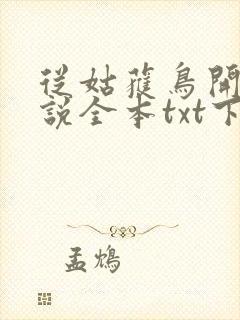 從姑獲鳥開
說全本txt下
孟鴆